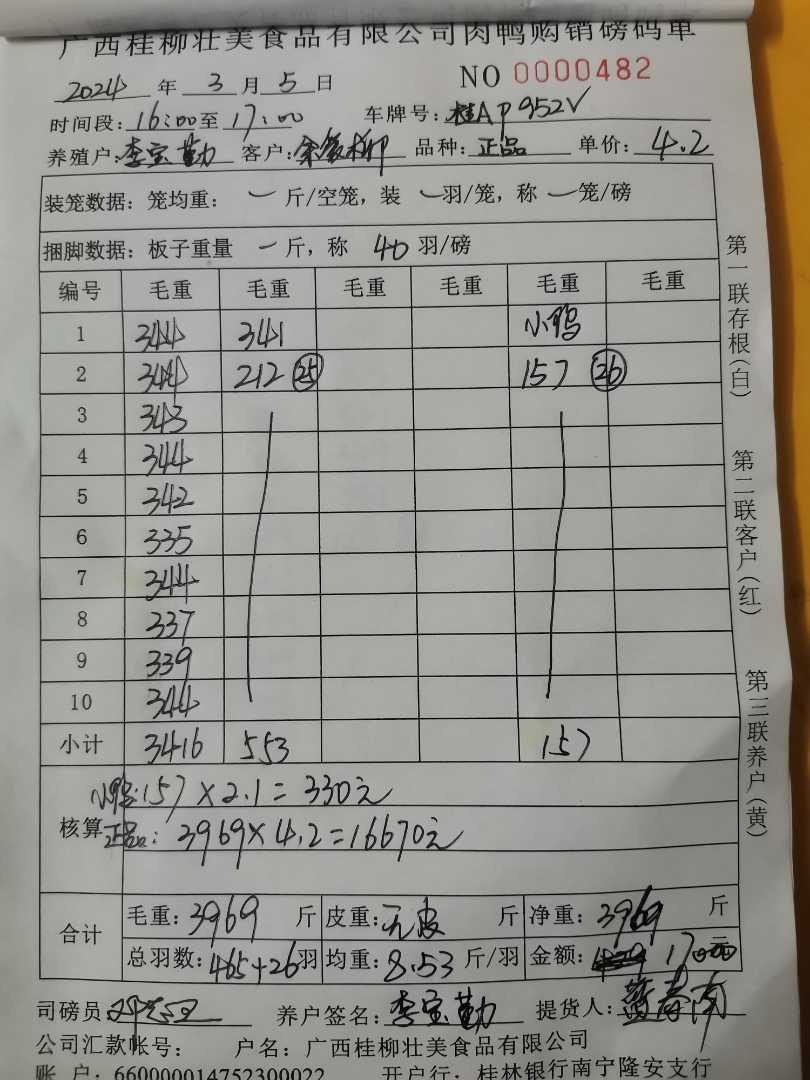 广西桂柳壮美食品有限公司肉鸭购销磅码单
2024 年 3 月 5 日 NO 0000482
时间段: 16:00 至 17:00 车牌号: 桂AP952V
养殖户: 李宝勤 客户: 品种: 正品 单价: 4.2
装笼数据: 笼均重: 一 斤/空笼, 装 一 羽/笼, 称 一 笼/磅
捆脚数据: 板子重量 一 斤, 称 40 羽/磅
编号 毛重 毛重 毛重 毛重 毛重 毛重
1 344 341 小鸭
2 344 212 25 157 26
3 343
4 344
5 342
6 335
7 344
8 337
9 339
10 344
小计 3416 553 157
核算 小鸭: 157 × 2.1 = 330元
正品: 3969 × 4.2 = 16670元
合计 毛重: 3969 斤 皮重: 无皮 斤 净重: 3969 斤
总羽数: 465+26 羽 均重: 8.53 斤/羽 金额: 17000 元
司磅员: 养户签名: 李宝勤 提货人: 黄春南
公司汇款帐号: 户名: 广西桂柳壮美食品有限公司
账 户: 660000014752300022 开户行: 桂林银行南宁隆安支行
第一联存根(白)
第二联客户(红)
第三联养户(黄)